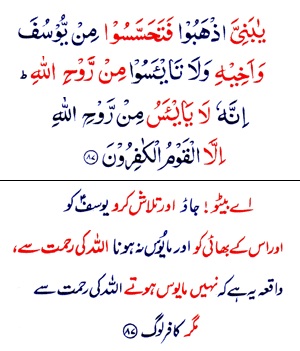 يٰبَنِيَّ اذْهَبُوْا فَتَحَسَّسُوْا مِنْ يُّوْسُفَ
وَاَخِيْهِ وَلَا تَايْئَسُوْا مِنْ رَّوْحِ اللّٰهِ ؕ
اِنَّهٗ لَا يَايْئَسُ مِنْ رَّوْحِ اللّٰهِ
اِلَّا الْقَوْمُ الْكٰفِرُوْنَ ۸۷
اے بیٹو! جاؤ اور تلاش کرو یوسفؑ کو
اور اس کے بھائی کو اور مایُوس نہ ہونا اللہ کی رحمت سے،
واقعہ یہ ہے کہ نہیں مایوس ہوتے اللہ کی رحمت سے
مگر کافر لوگ ۸۷